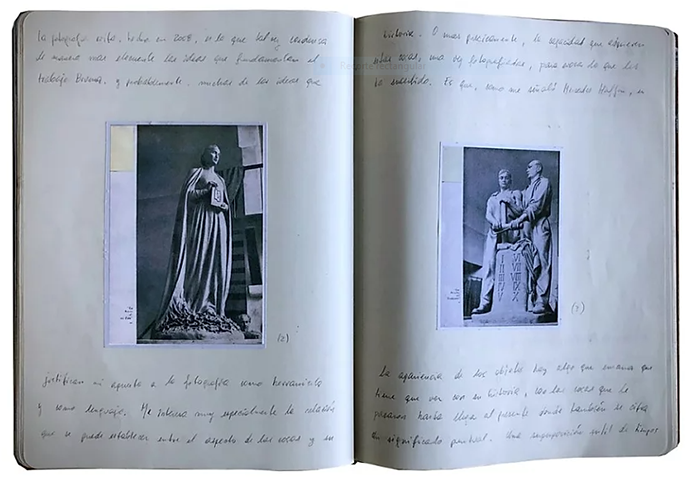 La fotografía
de manera más elemental las ideas que fundamentan el
trabajo y probablemente, muchas de las ideas que
(2)
justifican mi apuesta a la fotografía como herramienta
y como lenguaje. Me interesa muy especialmente la relación
que se puede establecer entre el aspecto de las cosas y su
historia. O más precisamente, la capacidad que adquieren
una vez fotografiadas, para evocar lo que les
ha sucedido. Es que, como me señaló
I II III IV V VI VII VIII IX X
(2)
La apariencia de los objetos hay algo que emana que
tiene que ver con su historia, con las cosas que le
pasaron hasta llegar al presente donde también se cifra
un significado puntual. Una superposición sutil de tiempos